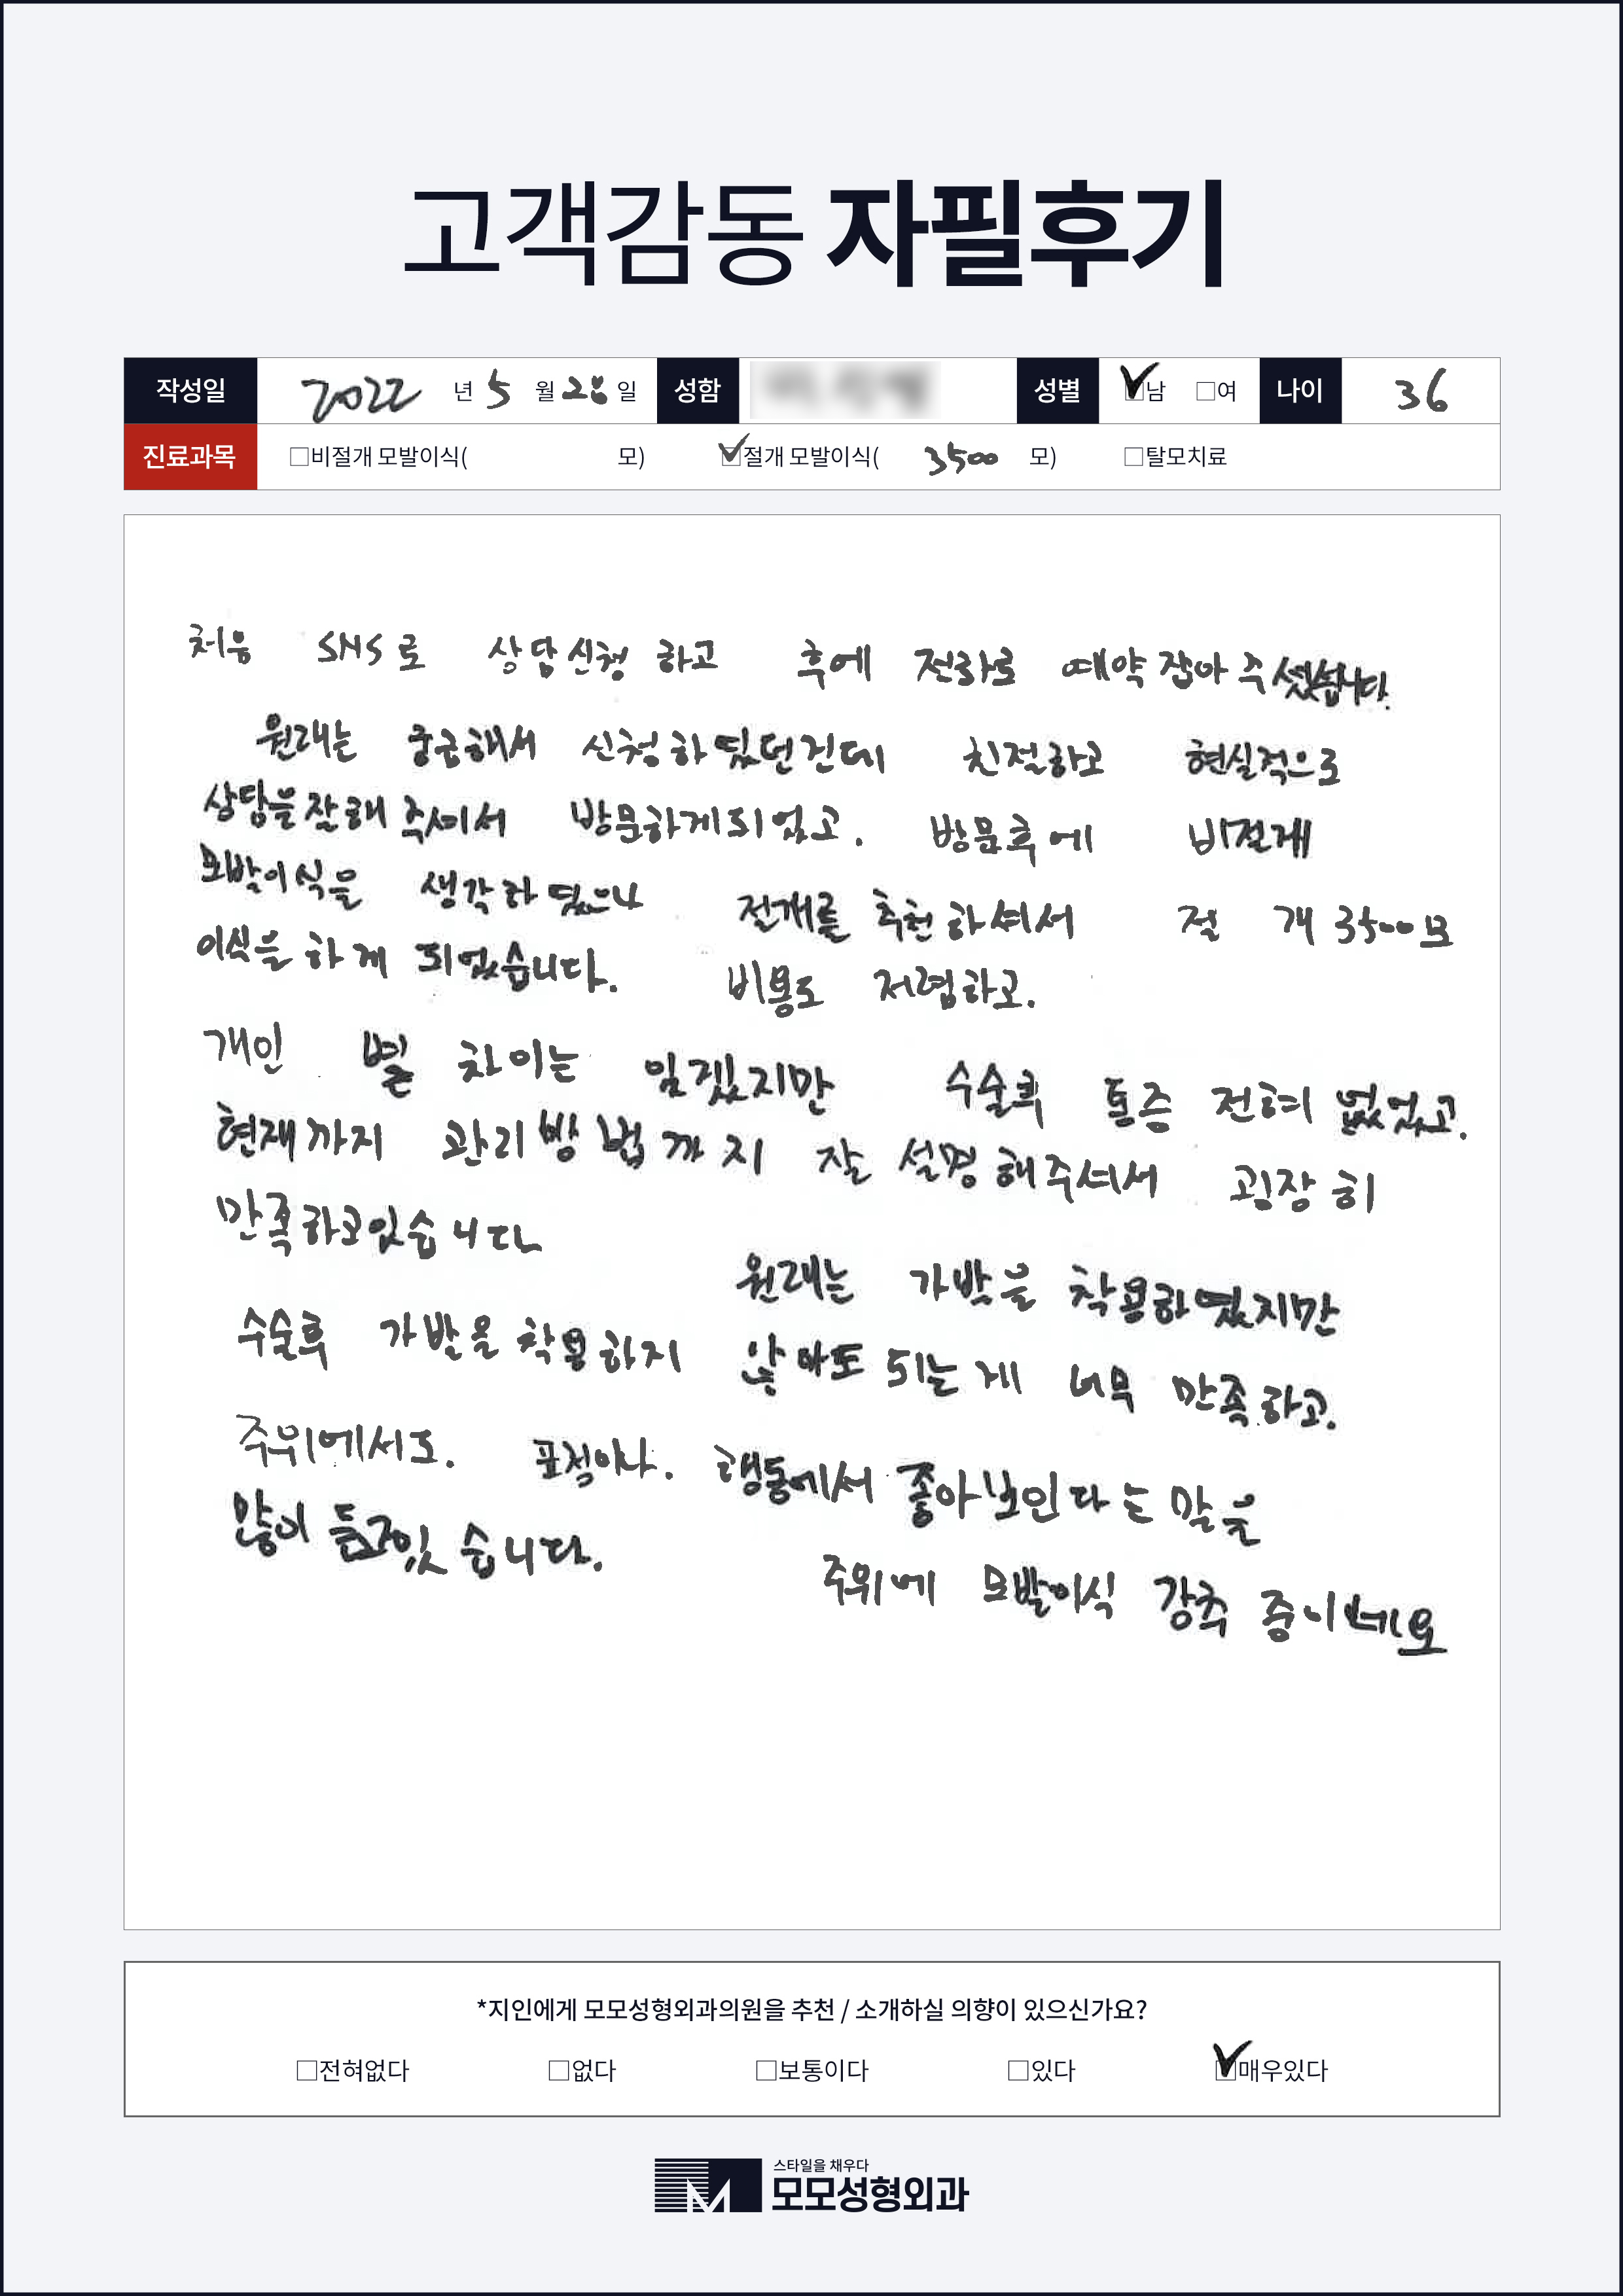 고객감동 자필후기
작성일 2022 년 5 월 28 일 성함 성별 ☑남 □여 나이 36
진료과목 □비절개 모발이식( 모) ☑절개 모발이식( 3500 모) □탈모치료
처음 SNS로 상담신청 하고 후에 전화로 예약 잡아 주셨습니다.
원래는 궁금해서 신청하였던건데 친절하고 현실적으로
상담을 잘해 주셔서 방문하게되었고. 방문후에 비절개
모발이식을 생각하였으나 절개를 추천하셔서 절 개 3500모
이식을 하게 되었습니다. 비용도 저렴하고.
개인 별 차이는 있겠지만 수술후 통증 전혀 없었고.
현재까지 관리방법까지 잘 설명해주셔서 굉장히
만족하고있습니다
원래는 가발을 착용하였지만
수술후 가발을 착용하지 않아도 되는게 너무 만족하고.
주위에서도. 표정이나. 행동에서 좋아보인다는 말을
많이 듣고있습니다.
주위에 모발이식 강추 중이네요
*지인에게 모모성형외과의원을 추천 / 소개하실 의향이 있으신가요?
□전혀없다 □없다 □보통이다 □있다 ☑매우있다
스타일을 채우다
모모성형외과